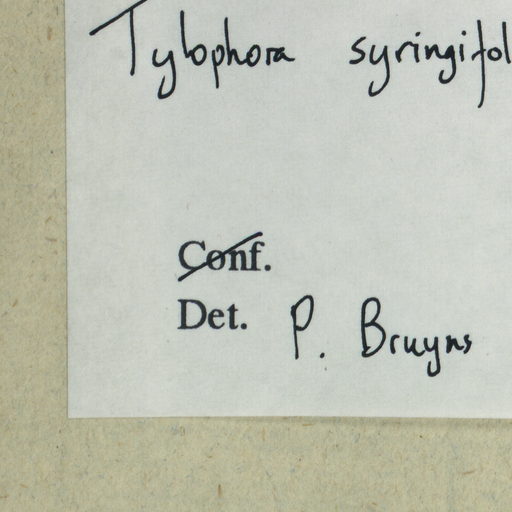 Tylophora syringifol
Conf.
Det. P. Bruyns